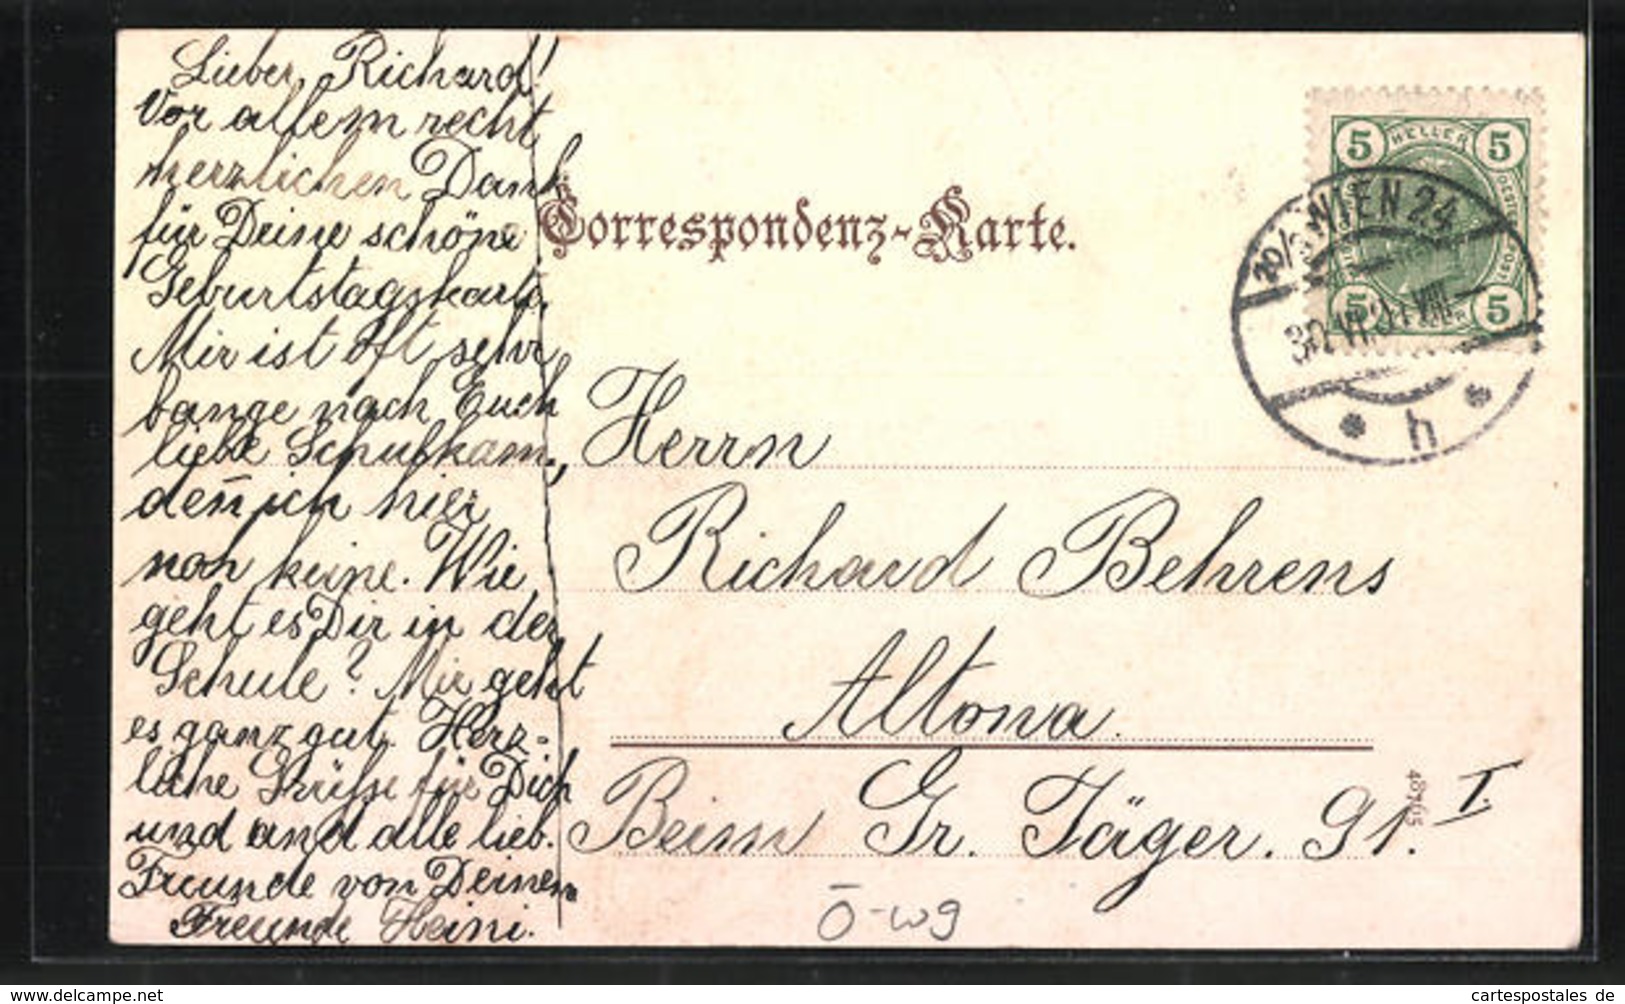 Lieber Richard!
Vor allem recht
herzlichen Dank
für Deine schöne
Geburtstagskarte.
Mir ist oft sehr
bange nach Euch
liebe Schulkam.,
den̄ ich hier
noh keine. Wie
geht es Dir in der
Schule? Mir geht
es ganz gut. Herz-
liche Grüsse für Dich
und and alle lieb.
Freunde von Deinem
Freunde Heini.
Correspondenz-Karte.
5 HELLER 5
5 5
WIEN 24
VIII
h
Herrn
Richard Behrens
Altona.
Beim Gr. Jäger. 91. I.
Ö-wg
www.cartespostales.de
cartespostales de